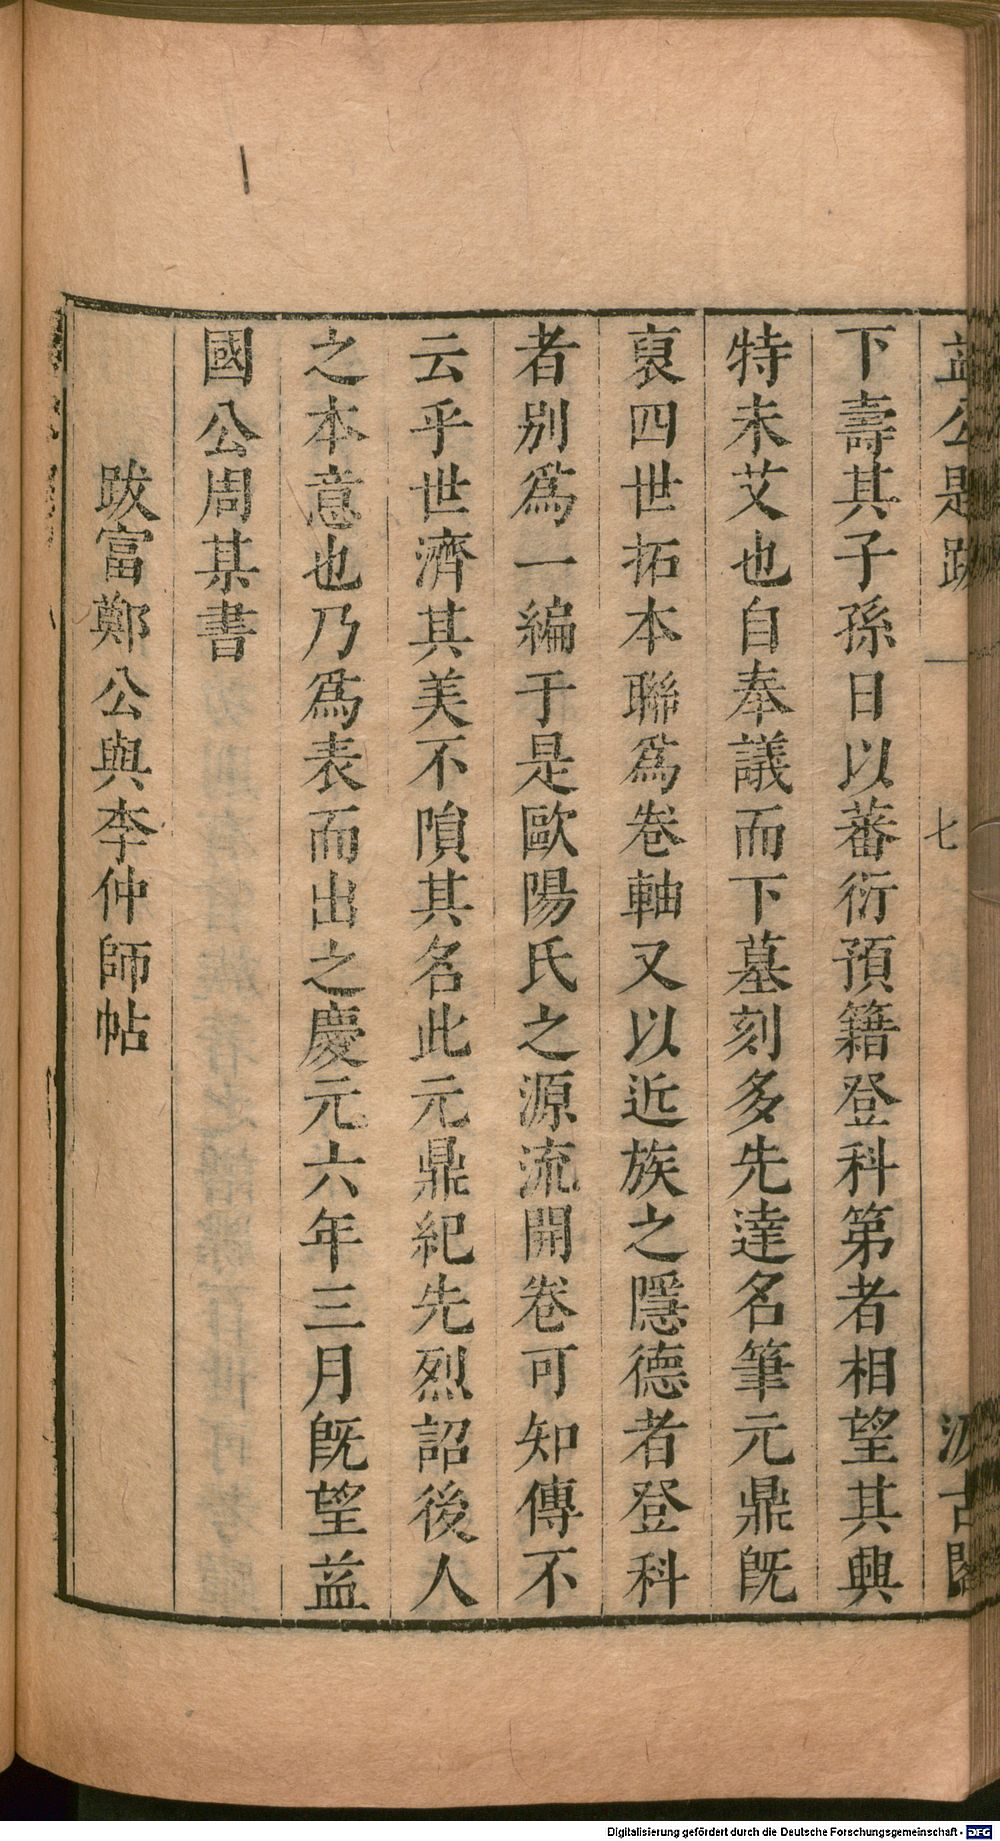 益公題跋 一 七 汲古閣
下壽其子孫日以蕃衍預籍登科第者相望其興
特未艾也自奉議而下墓刻多先達名筆元鼎旣
裒四世拓本聯爲卷軸又以近族之隱德者登科
者别爲一編于是歐陽氏之源流開卷可知傳不
云乎世濟其美不隕其名此元鼎紀先烈詔後人
之本意也乃爲表而出之慶元六年三月旣望益
國公周某書
跋富鄭公與李仲師帖
Digitalisierung gefördert durch die Deutsche Forschungsgemeinschaft - DFG